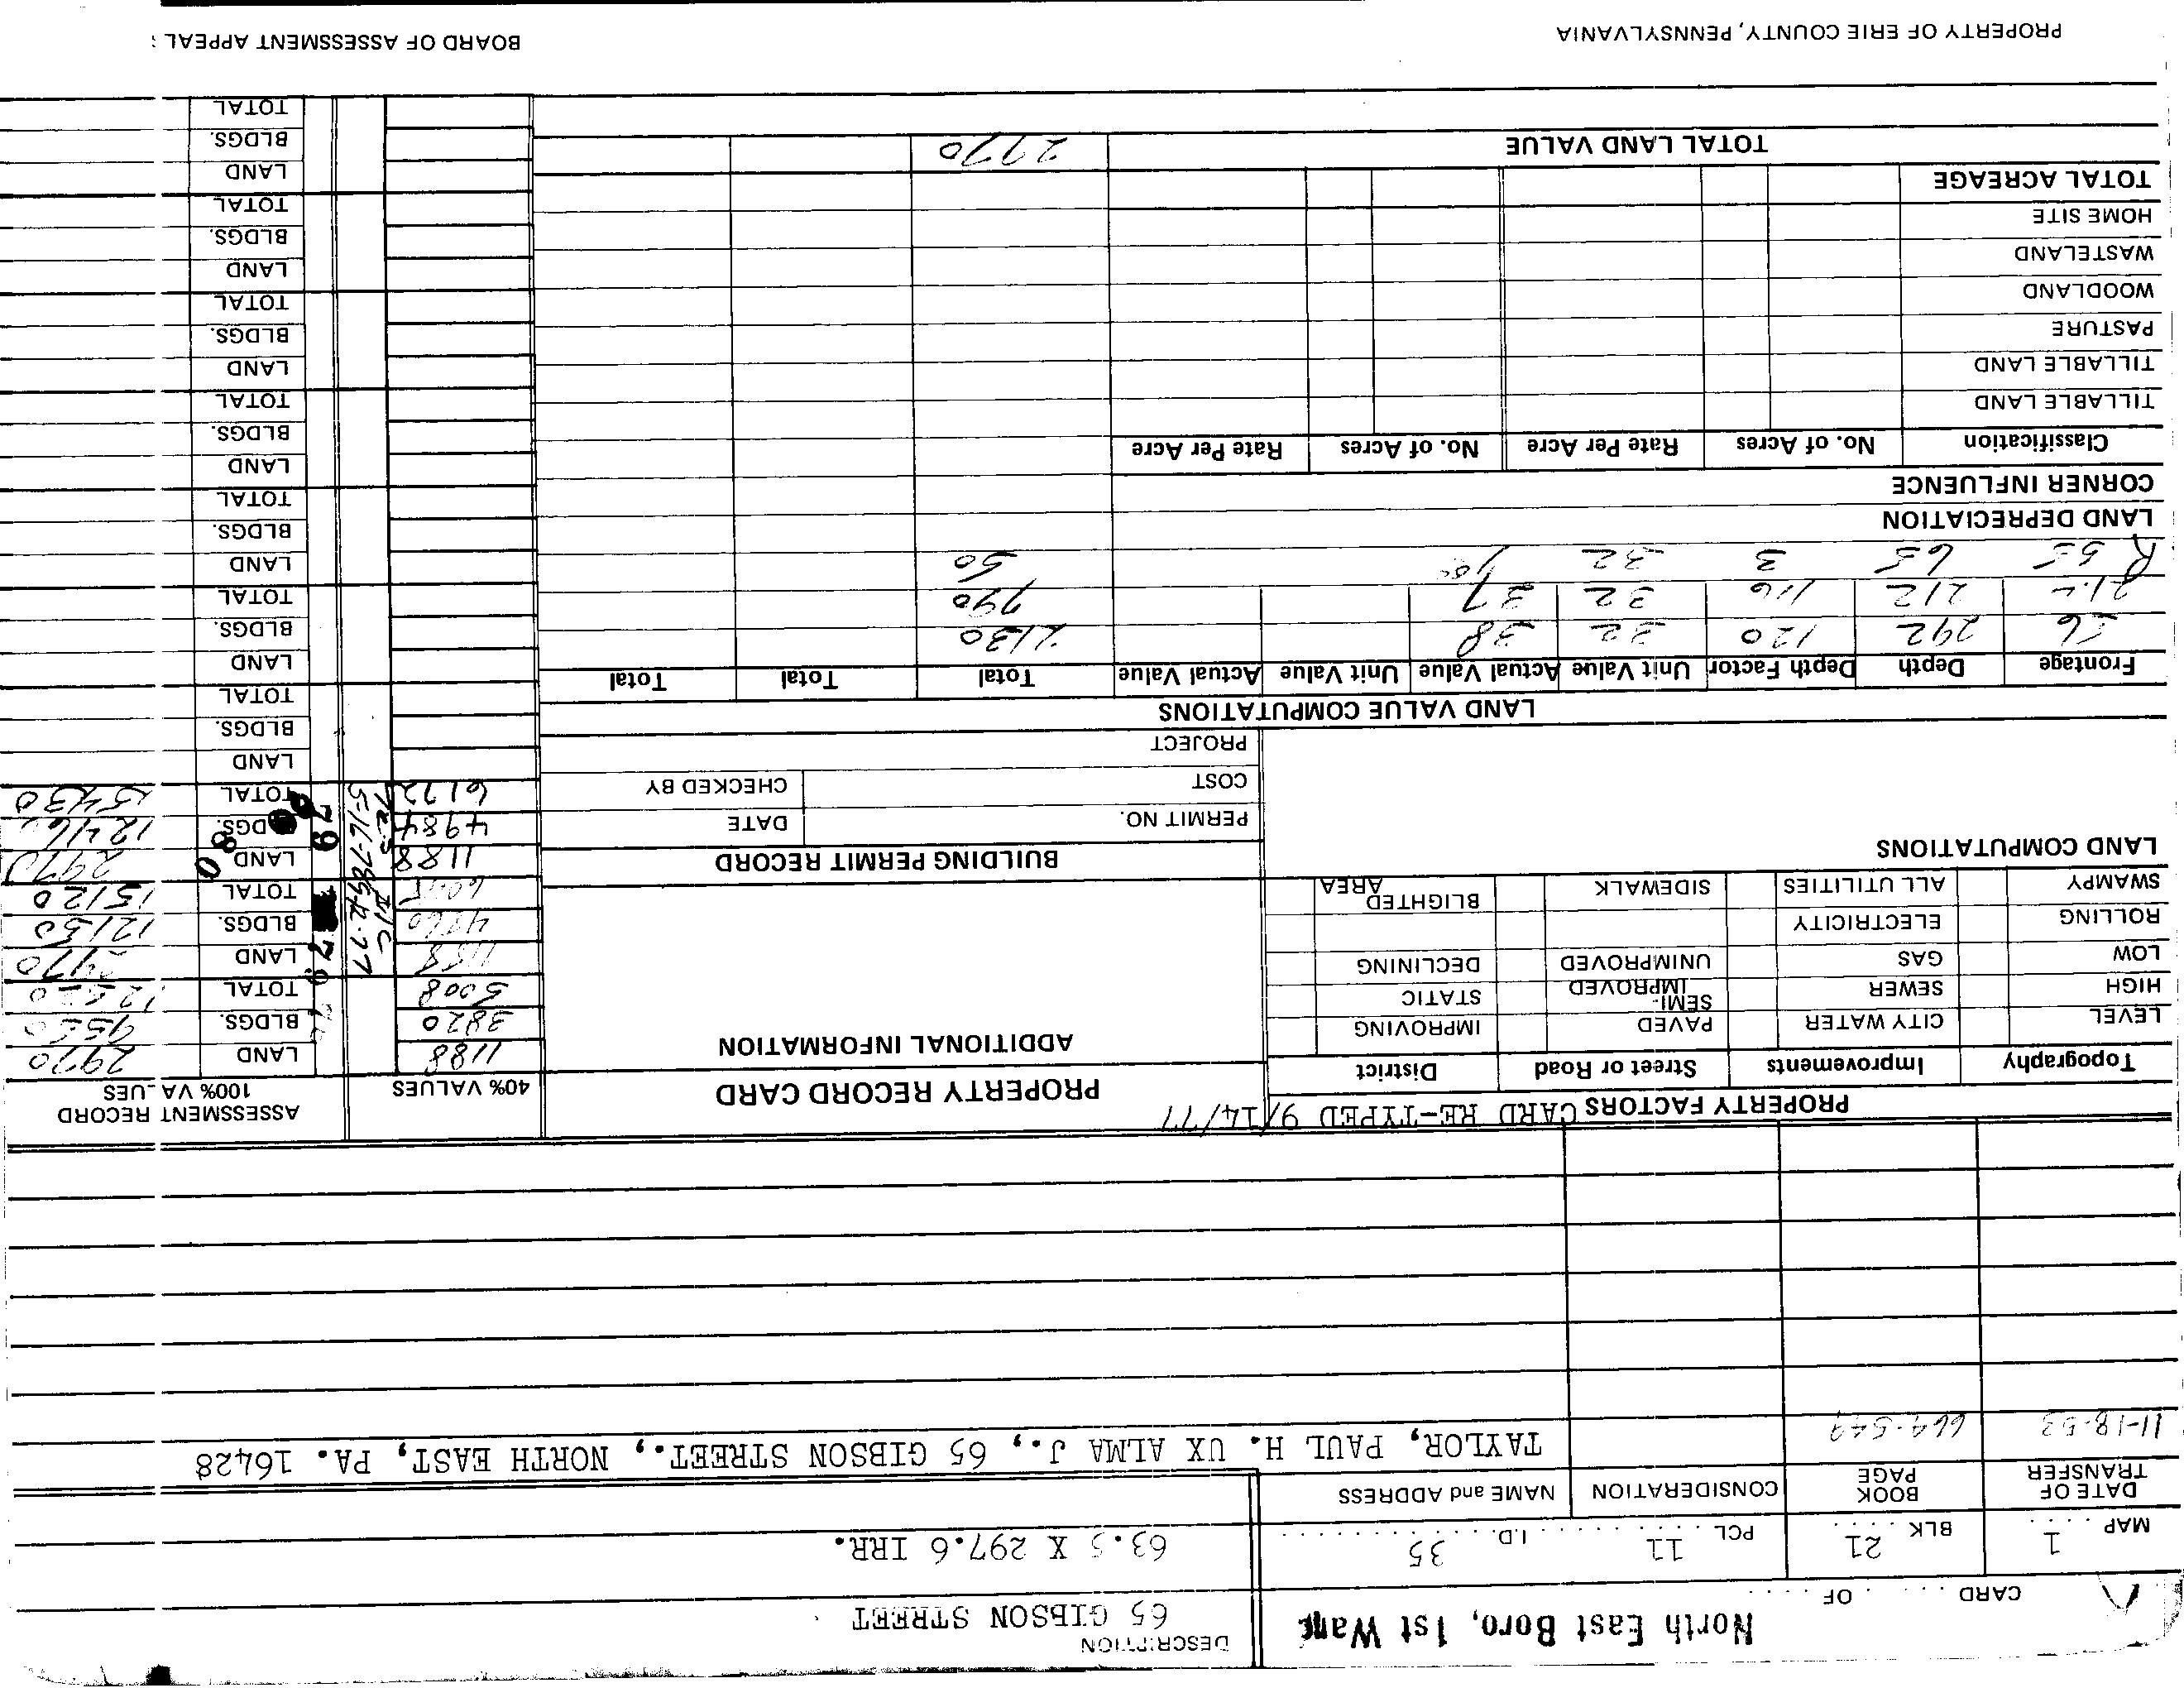 North East Boro, 1st Ward
CARD . . . . OF . . . .
DESCRIPTION
65 GIBSON STREET
MAP 1 BLK 21 PCL 11 I.D. 35
63.5 X 297.6 IRR.
DATE OF TRANSFER BOOK PAGE CONSIDERATION NAME and ADDRESS
11-18-53 664-549 TAYLOR, PAUL H. UX ALMA J., 65 GIBSON STREET., NORTH EAST, PA. 16428
PROPERTY FACTORS CARD RE-TYPED 9/14/77
Topography Improvements Street or Road District
LEVEL CITY WATER PAVED IMPROVING
HIGH SEWER SEMI-IMPROVED STATIC
LOW GAS UNIMPROVED DECLINING
ROLLING ELECTRICITY
SWAMPY ALL UTILITIES SIDEWALK BLIGHTED AREA
LAND COMPUTATIONS
PROPERTY RECORD CARD
ADDITIONAL INFORMATION
BUILDING PERMIT RECORD
PERMIT NO. DATE
COST CHECKED BY
PROJECT
40% VALUES ASSESSMENT RECORD 100% VALUES
1188 LAND 2970
3820 BLDGS. 9550
5008 TOTAL 12520
1188 78 LAND 2970
4860 BLDGS. 12150
TOTAL 15120
1188 79 80 LAND 2970
4984 BLDGS. 12460
6172 TOTAL 15430
LAND
BLDGS.
TOTAL
LAND
BLDGS.
TOTAL
LAND
BLDGS.
TOTAL
LAND
BLDGS.
TOTAL
LAND
BLDGS.
TOTAL
LAND
BLDGS.
TOTAL
LAND
BLDGS.
TOTAL
LAND VALUE COMPUTATIONS
Frontage Depth Depth Factor Unit Value Actual Value Unit Value Actual Value Total Total Total
56 292 120 32 38 2130
212 116 32 37 790
R 55 65 3 32 50
LAND DEPRECIATION
CORNER INFLUENCE
Classification No. of Acres Rate Per Acre No. of Acres Rate Per Acre
TILLABLE LAND
TILLABLE LAND
PASTURE
WOODLAND
WASTELAND
HOME SITE
TOTAL ACREAGE
TOTAL LAND VALUE 2970
PROPERTY OF ERIE COUNTY, PENNSYLVANIA BOARD OF ASSESSMENT APPEAL